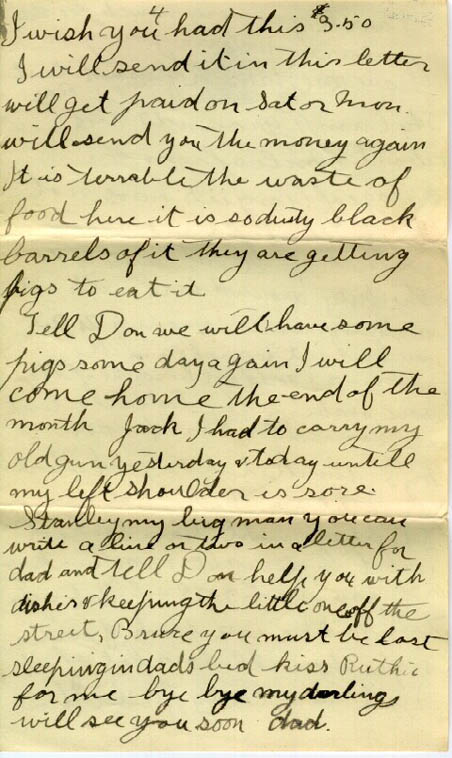 4
I wish you had this $3.50
I will send it in this letter
will get paid on Sat or Mon.
will send you the money again
It is terrable the waste of
food here it is so dusty black
barrels of it they are getting
pigs to eat it
Tell Don we will have some
pigs some day again I will
come home the end of the
month Jack I had to carry my
old gun yesterday & today untill
my left shoulder is sore.
Stanley my big man you can
write a line or two in a letter for
dad and tell Don help you with
dishes & keeping the little one off the
street, Bruce you must be lost
sleeping in dads bed kiss Ruthie
for me bye bye my darlings
will see you soon dad.